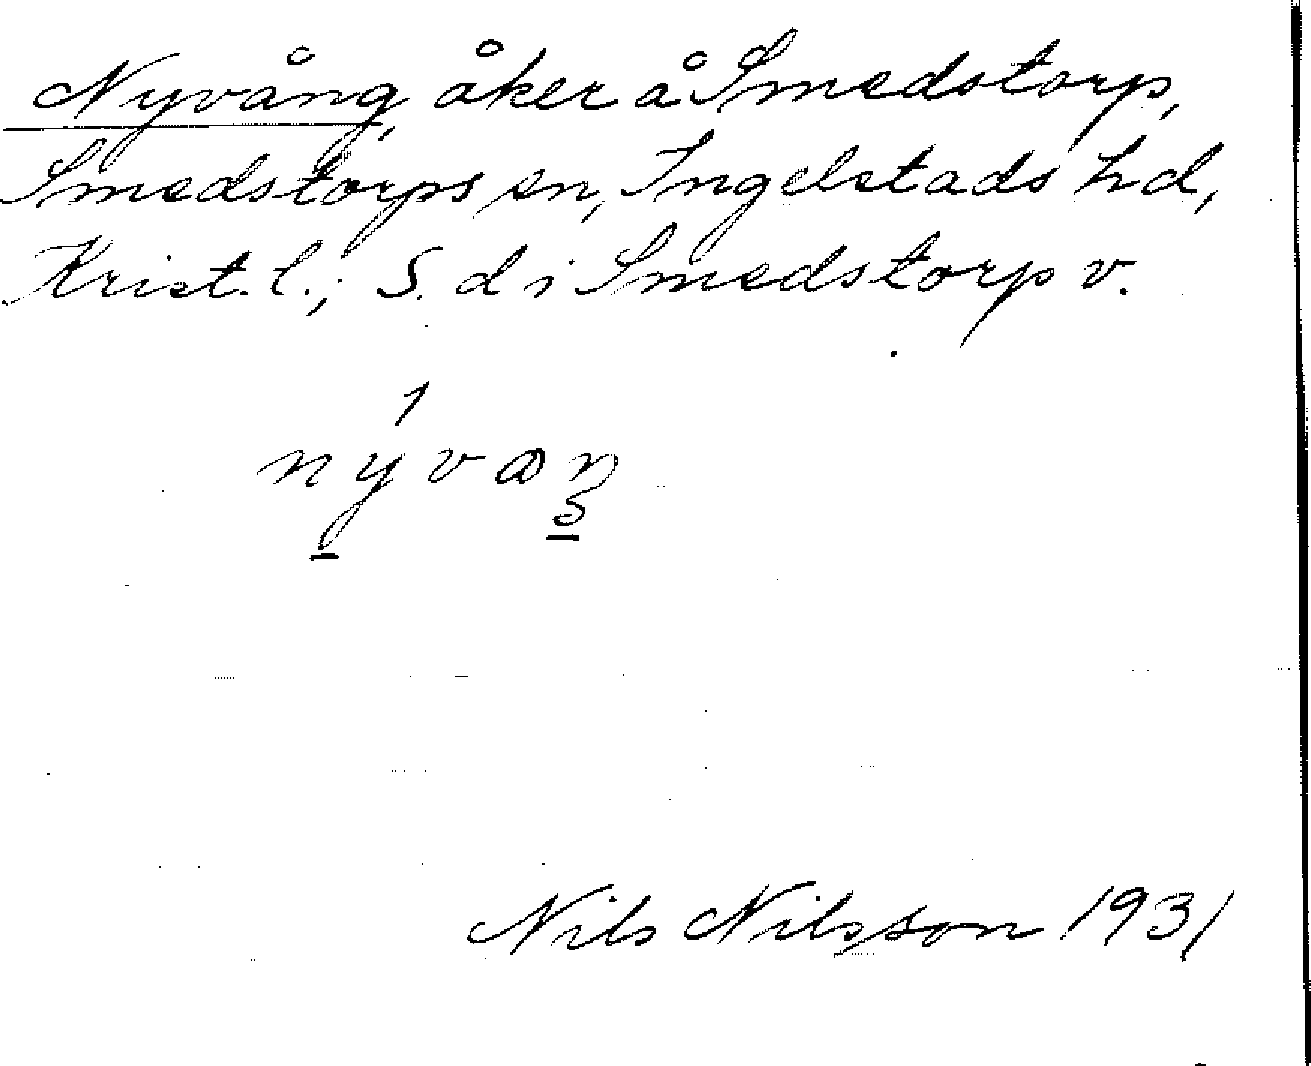 Nyvång, åker å Smedstorp,
Smedstorps sn, Ingelstads hd,
Krist. l.; S. d i Smedstorp v.
Nils Nilsson 1931